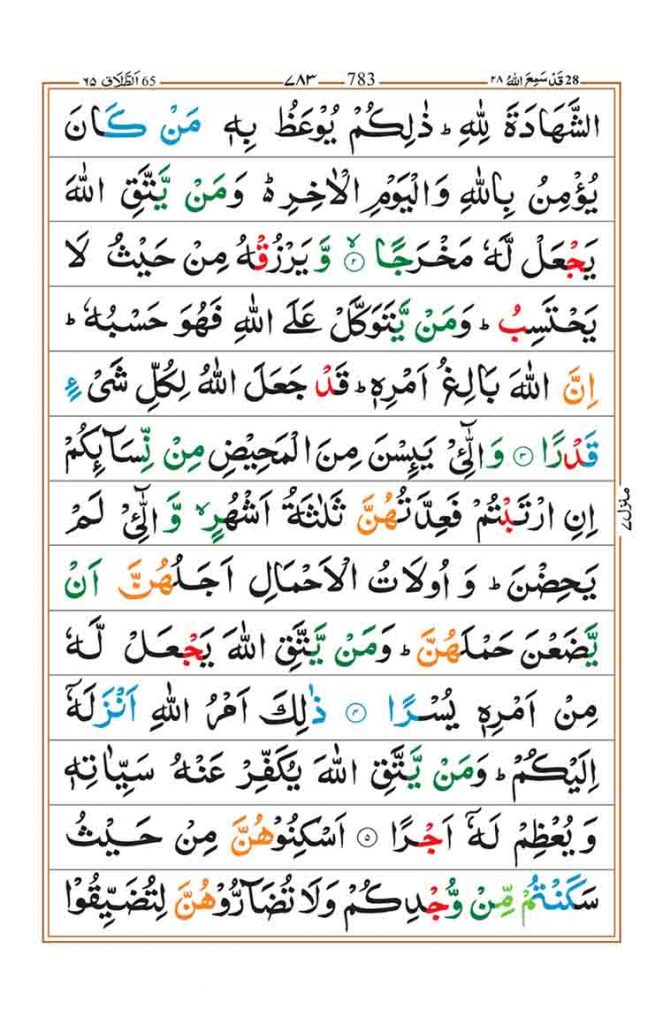 28 قَدْ سَمِعَ اللّٰهُ ٢٨ 783 ٧٨٣ 65 اَلطَّلَاق ٦٥
الشَّهَادَةَ لِلّٰهِ ؕ ذٰلِكُمْ يُوْعَظُ بِهٖ مَنْ كَانَ
يُؤْمِنُ بِاللّٰهِ وَالْيَوْمِ الْاٰخِرِ ؕ۬ وَمَنْ يَّتَّقِ اللّٰهَ
يَجْعَلْ لَّهٗ مَخْرَجًا ۙ﴿۲﴾ وَّيَرْزُقْهُ مِنْ حَيْثُ لَا
يَحْتَسِبُ ؕ وَمَنْ يَّتَوَكَّلْ عَلَى اللّٰهِ فَهُوَ حَسْبُهٗ ؕ
اِنَّ اللّٰهَ بَالِغُ اَمْرِهٖ ؕ قَدْ جَعَلَ اللّٰهُ لِكُلِّ شَىْءٍ
قَدْرًا ﴿۳﴾ وَالّٰٓـِٔىْ يَئِسْنَ مِنَ الْمَحِيْضِ مِنْ نِّسَآئِكُمْ
اِنِ ارْتَبْتُمْ فَعِدَّتُهُنَّ ثَلٰثَةُ اَشْهُرٍ ۙ وَّالّٰٓـِٔىْ لَمْ
يَحِضْنَ ؕ وَ اُولَاتُ الْاَحْمَالِ اَجَلُهُنَّ اَنْ
يَّضَعْنَ حَمْلَهُنَّ ؕ وَمَنْ يَّتَّقِ اللّٰهَ يَجْعَلْ لَّهٗ
مِنْ اَمْرِهٖ يُسْرًا ﴿۴﴾ ذٰلِكَ اَمْرُ اللّٰهِ اَنْزَلَهٗۤ
اِلَيْكُمْ ؕ وَمَنْ يَّتَّقِ اللّٰهَ يُكَفِّرْ عَنْهُ سَيِّاٰتِهٖ
وَيُعْظِمْ لَهٗۤ اَجْرًا ﴿۵﴾ اَسْكِنُوْهُنَّ مِنْ حَيْثُ
سَكَنْتُمْ مِّنْ وُّجْدِكُمْ وَلَا تُضَآرُّوْهُنَّ لِتُضَيِّقُوْا
منزل ٧